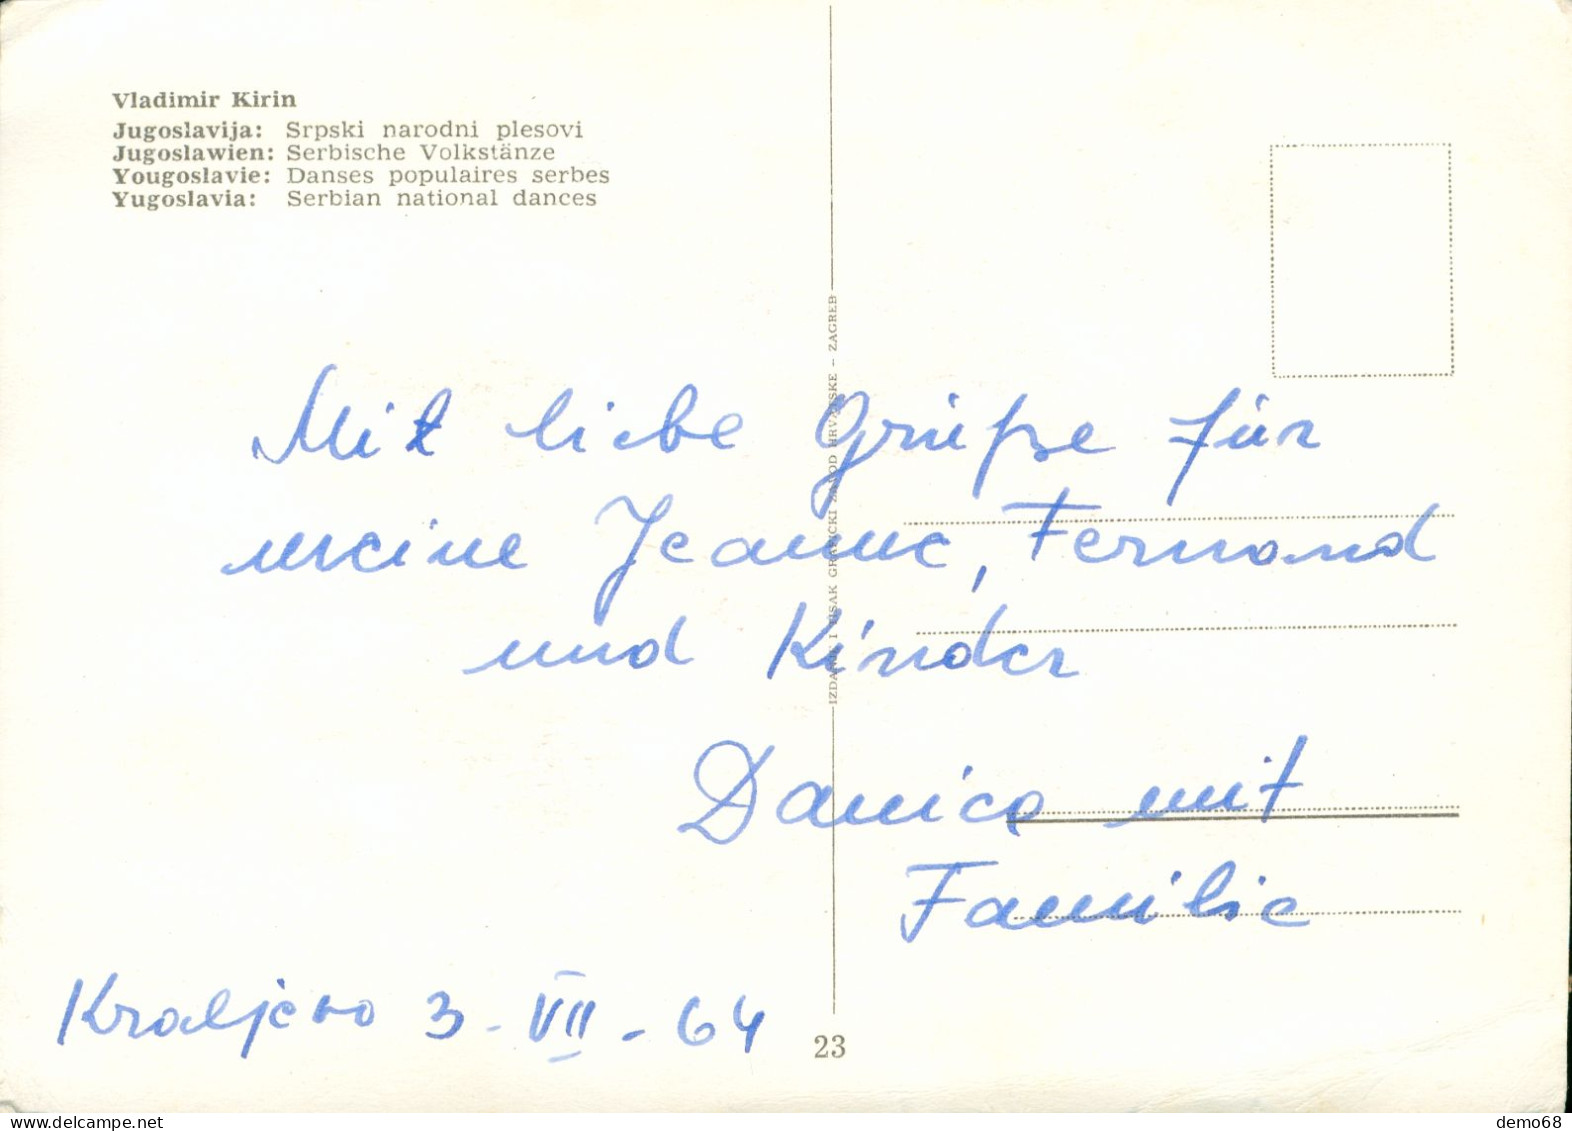 Vladimir Kirin
Jugoslavija: Srpski narodni plesovi
Jugoslawien: Serbische Volkstänze
Yougoslavie: Danses populaires serbes
Yugoslavia: Serbian national dances
IZDANJE I TISAK GRAFIČKI ZAVOD HRVATSKE – ZAGREB
Mit liebe Grüße für
meine Jeanne, Fernand
und Kinder
Danica mit
Familie
Kraljevo 3-VII-64
23
demo68